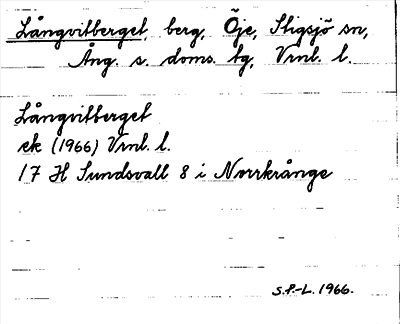 Långvitberget, berg, Öje, Stigsjö sn,
Ång. s. doms. tg, Vrnl. l.
Långvitberget
ek (1966) Vrnl. l.
17 H Sundsvall 8 i Norrkrånge
S.P.-L. 1966.